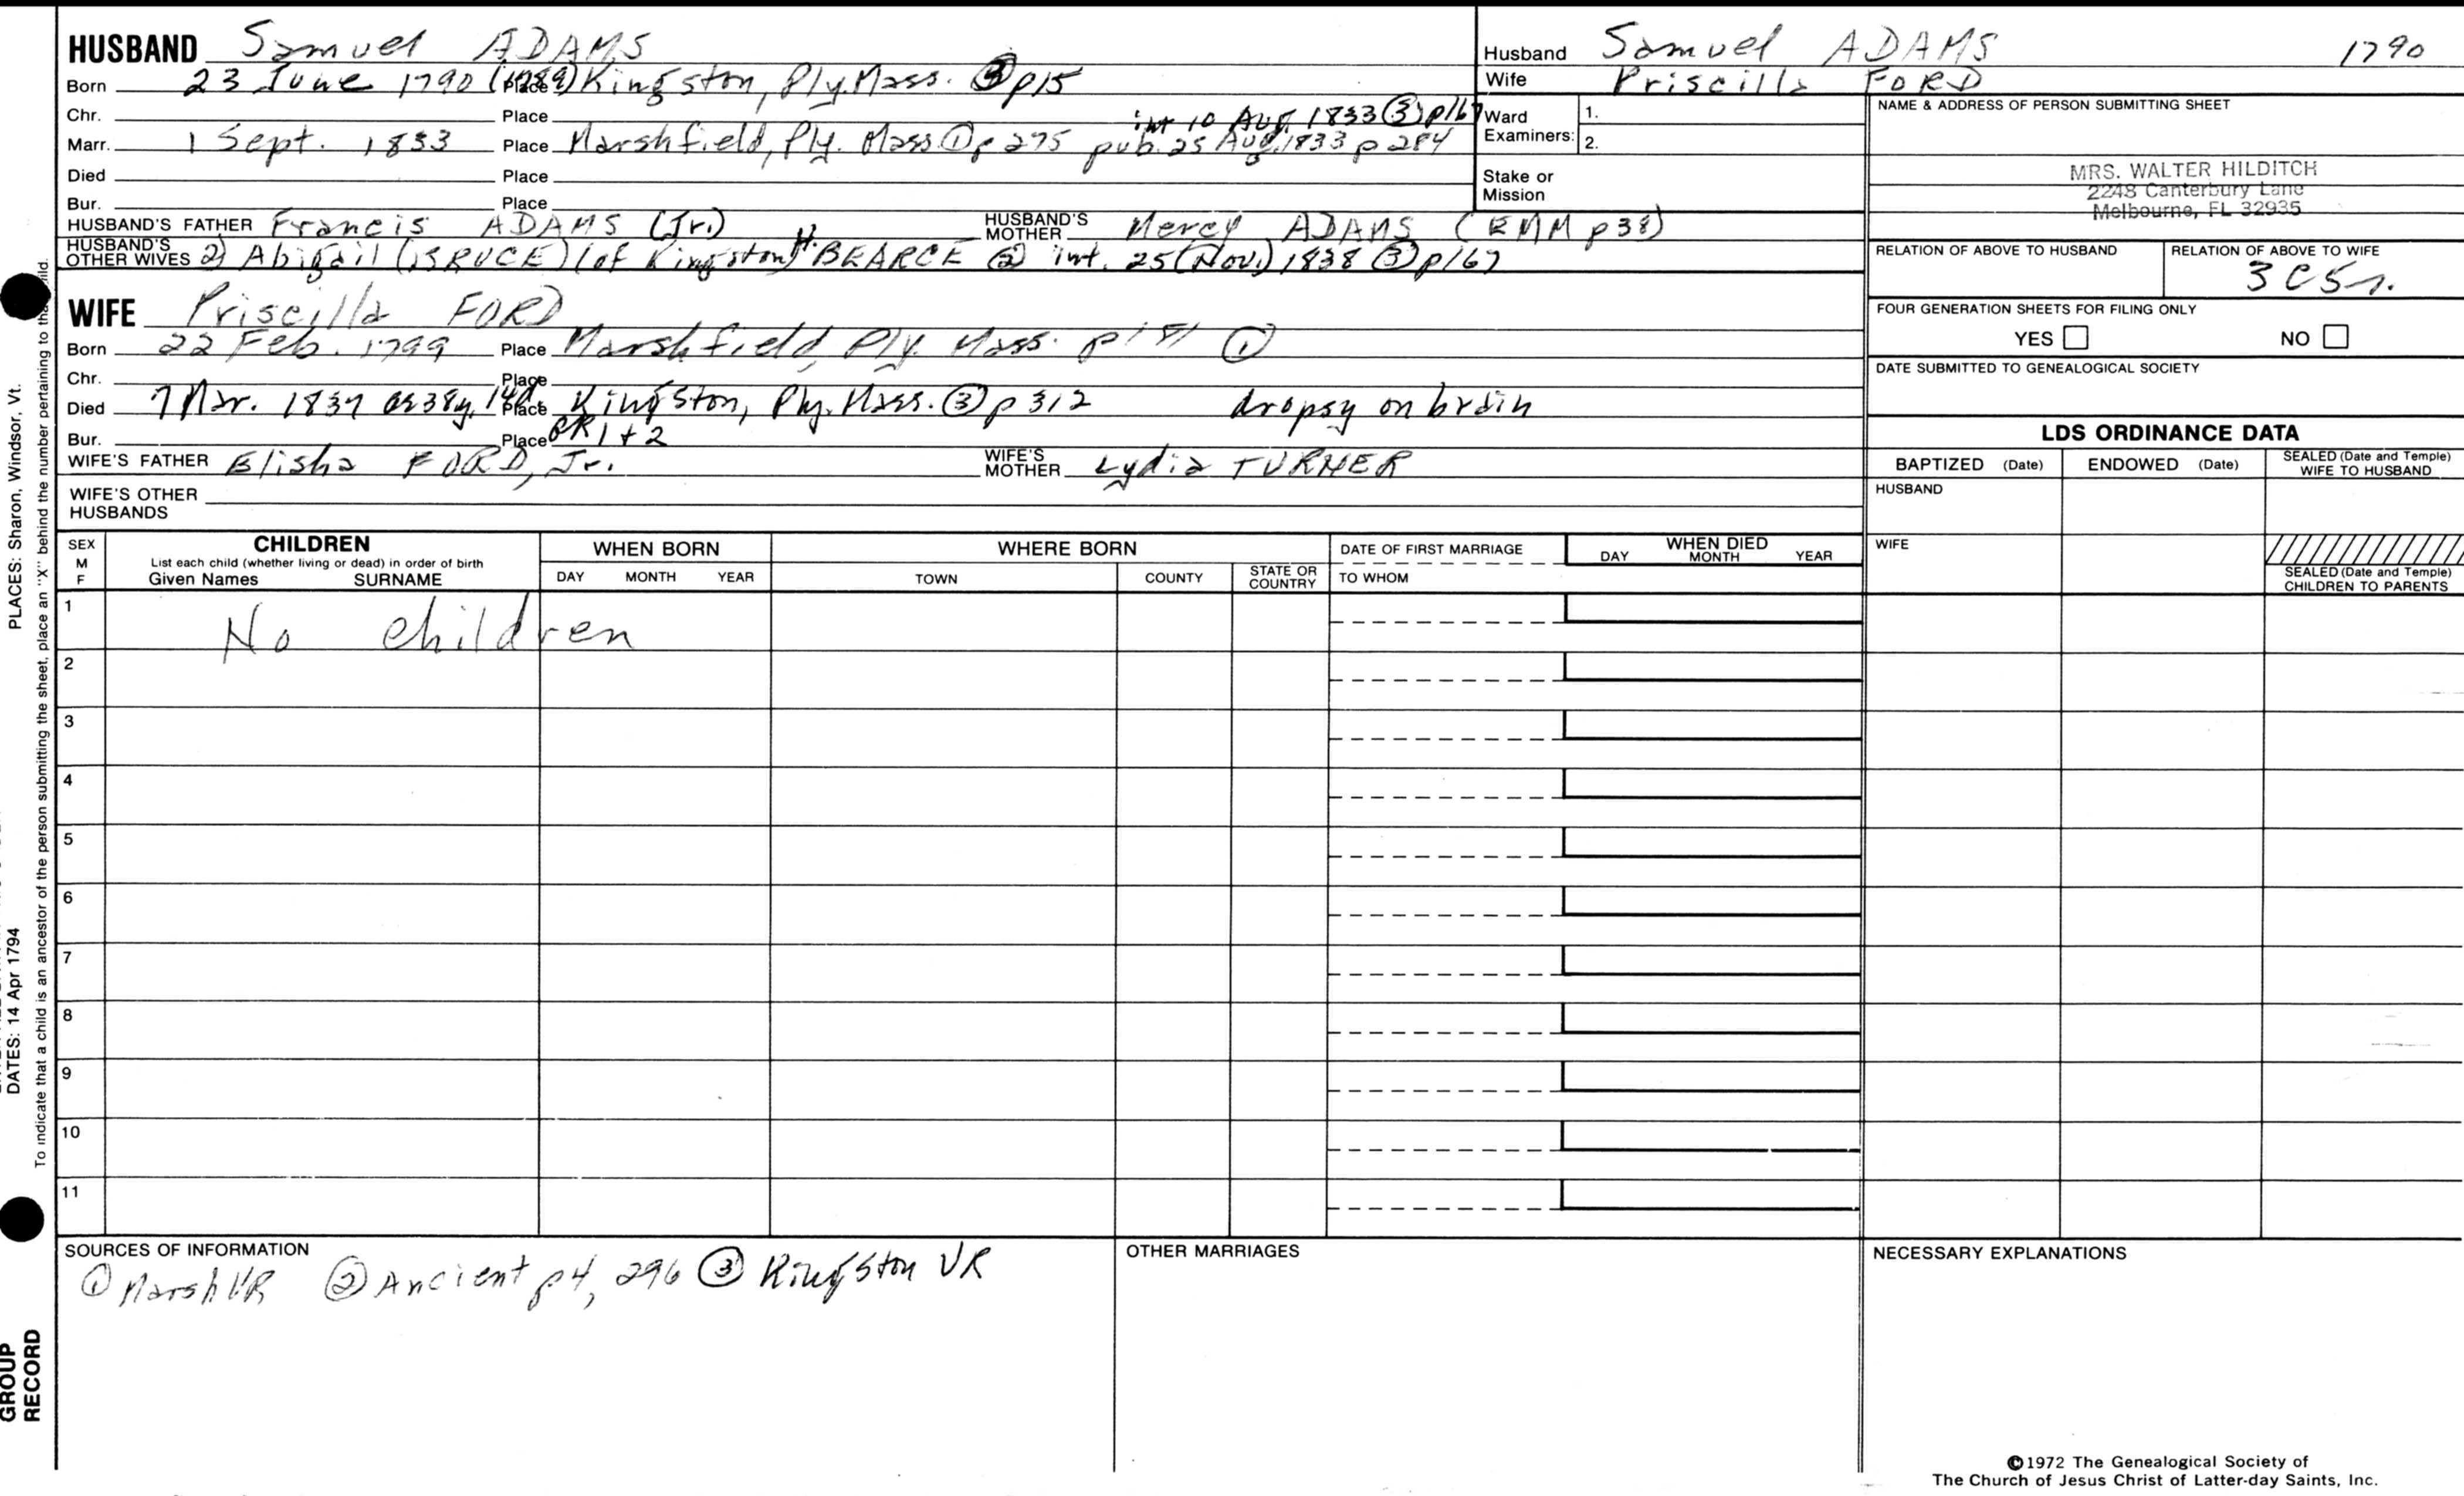 HUSBAND Samuel ADAMS
Born 23 June 1790 (1789) Place Kingston, Ply. Mass. ③ p15
Chr. Place int 10 Aug. 1833 ③ p167
Marr. 1 Sept. 1833 Place Marshfield, Ply. Mass ① p 275 pub. 25 Aug. 1833 p 284
Died Place
Bur. Place
HUSBAND'S FATHER Francis ADAMS (Jr.) HUSBAND'S MOTHER Mercy ADAMS (RMM p38)
HUSBAND'S OTHER WIVES 2) Abigail (BRUCE) (of Kingston) H. BEARCE ② int. 25 (Nov.) 1838 ③ p167
WIFE Priscilla FORD
Born 22 Feb. 1799 Place Marshfield Ply. Mass. ①
Chr. Place
Died 7 Mar. 1837 ae 38y, 14d. Place Kingston, Ply. Mass. ③ p 312 dropsy on brain
Bur. Place GR 1 + 2
WIFE'S FATHER Elisha FORD, Jr. WIFE'S MOTHER Lydia TURNER
WIFE'S OTHER HUSBANDS
Husband Samuel ADAMS 1790
Wife Priscilla FORD
Ward Examiners: 1.
2.
Stake or Mission
NAME & ADDRESS OF PERSON SUBMITTING SHEET
MRS. WALTER HILDITCH
2248 Canterbury Lane
Melbourne, FL 32935
RELATION OF ABOVE TO HUSBAND RELATION OF ABOVE TO WIFE
3C5r.
FOUR GENERATION SHEETS FOR FILING ONLY
YES NO
DATE SUBMITTED TO GENEALOGICAL SOCIETY
LDS ORDINANCE DATA
BAPTIZED (Date) ENDOWED (Date) SEALED (Date and Temple) WIFE TO HUSBAND
HUSBAND
WIFE
SEALED (Date and Temple) CHILDREN TO PARENTS
SEX M F
CHILDREN
List each child (whether living or dead) in order of birth
Given Names SURNAME
WHEN BORN
DAY MONTH YEAR
WHERE BORN
TOWN COUNTY STATE OR COUNTRY
DATE OF FIRST MARRIAGE
TO WHOM
WHEN DIED
DAY MONTH YEAR
1 No children
2
3
4
5
6
7
8
9
10
11
SOURCES OF INFORMATION
① Marsh VR ② Ancient p4, 296 ③ Kingston VR
OTHER MARRIAGES
NECESSARY EXPLANATIONS
©1972 The Genealogical Society of
The Church of Jesus Christ of Latter-day Saints, Inc.
PLACES: Sharon, Windsor, Vt.
DATES: 14 Apr 1794
To indicate that a child is an ancestor of the person submitting the sheet, place an "X" behind the number pertaining to that child.
GROUP
RECORD